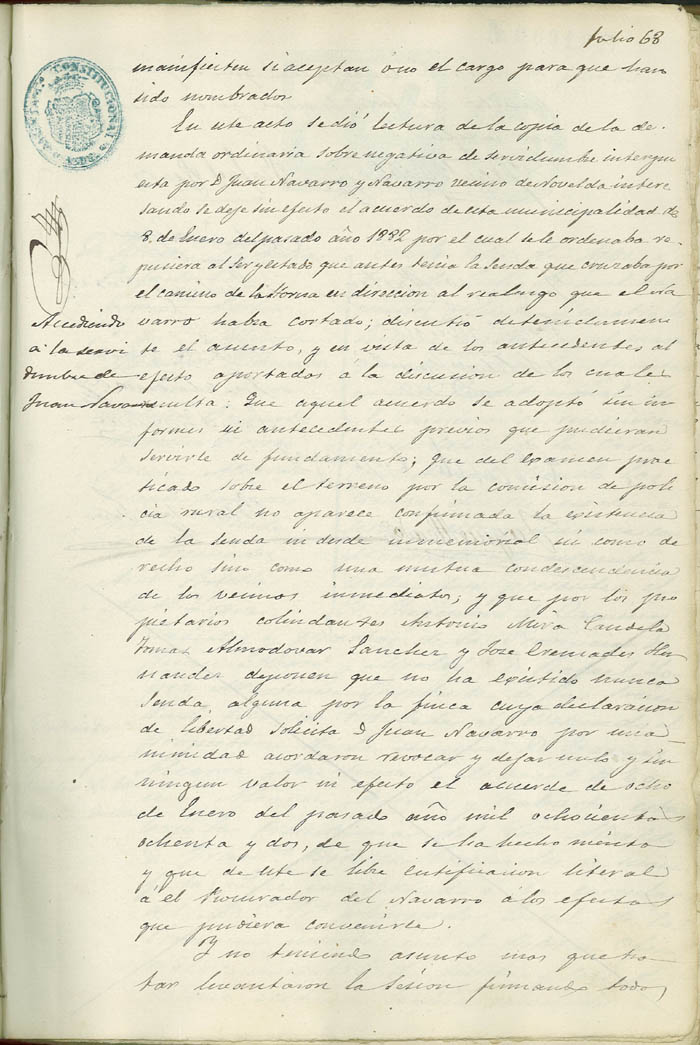 folio 68
CONSTITUCIONAL
manifiesten si aceptan ó no el cargo para que han
sido nombrados
En este acto se dió lectura de la copia de la de-
manda ordinaria sobre negativa de servidumbre interpu
esta por D Juan Navarro y Navarro vecino de Novelda intere
sando se deje sin efecto el acuerdo de esta municipalidad de
8. de Enero del pasado año 1882 por el cual se le ordenaba re-
pusiera al ser y estado que antes tenia la senda que cruzaba por
el camino de la Horna en direccion al realengo que el Na
varro habia cortado; discutió detenidamen
te el asunto, y en vista de los antecedentes al
efecto aportados á la discusion de los cuales
resulta: Que aquel acuerdo se adoptó sin in
formes ni antecedentes previos que pudieran
servirle de fundamento; que del examen prac
ticado sobre el terreno por la comision de poli
cia rural no aparece confirmada la existencia
de la senda ni desde inmemorial ni como de
recho sino como una mutua condescendencia
de los vecinos inmediatos; y que por los pro
pietarios colindantes Antonio Mira Candela
Tomas Almodovar Sanchez y Jose Cremades Her
nandez deponen que no ha existido nunca
senda alguna por la finca cuya declaracion
de libertad solicita D Juan Navarro por una
nimidad acordaron revocar y dejar nulo y sin
ningun valor ni efecto el acuerde de ocho
de Enero del pasado año mil ochocientos
ochenta y dos, de que se ha hecho mérito
y que de este se libre certificacion literal
á el Procurador del Navarro á los efectos
que pudiera convenirle.
Y no teniendo asunto mas que tra
tar levantaron la sesion firmando todos
Accediendo
á la servi
dumbre de
Juan Navarro